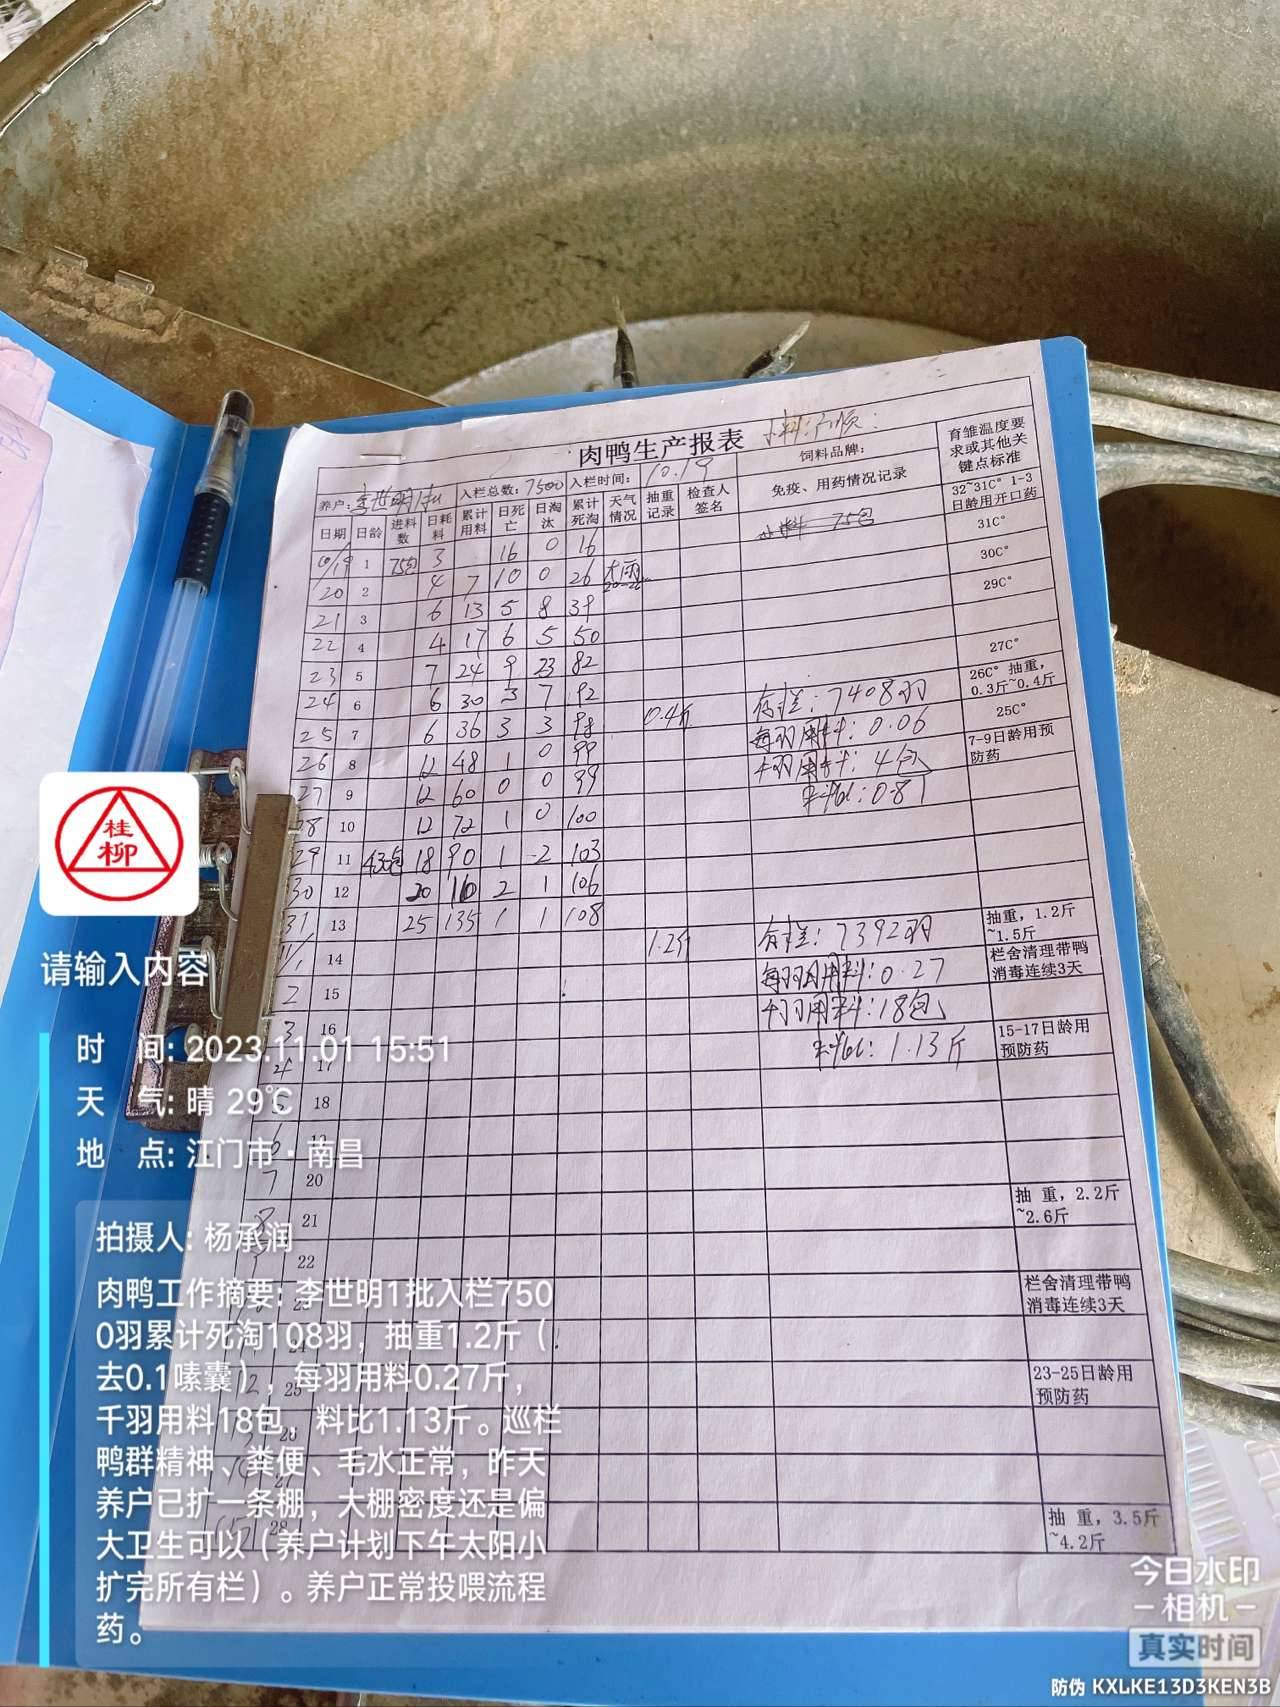 肉鸭生产报表
养户: 李世明 入栏总数: 7500 入栏时间: 10.19 饲料品牌: 育雏温度要求或其他关键点标准
日期 日龄 进料数 日耗料 累计用料 日死亡 日淘汰 累计死淘 天气情况 抽重记录 检查人签名 免疫、用药情况记录 32~31C° 1-3日龄用开口药
10/19 1 75包 3 16 0 16 31C°
20 2 4 7 10 0 26 大雨 30C°
21 3 6 13 5 8 39 29C°
22 4 4 17 6 5 50
23 5 7 24 9 23 82 27C°
24 6 6 30 3 7 92 26C° 抽重，0.3斤~0.4斤
25 7 6 36 3 3 98 0.4斤 存栏: 7408羽 25C°
26 8 12 48 1 0 99 每羽用料: 0.06 7-9日龄用预防药
27 9 12 60 0 0 99 千羽用料: 4包
28 10 12 72 1 0 100 料比: 0.81
29 11 43包 18 90 1 2 103
30 12 20 110 2 1 106
31 13 25 135 1 1 108 抽重，1.2斤~1.5斤
11/1 14 1.2斤 存栏: 7392羽 栏舍清理带鸭消毒连续3天
2 15 每羽用料: 0.27
3 16 千羽用料: 18包 15-17日龄用预防药
4 17 料比: 1.13斤
5 18
6 19
7 20
8 21 抽 重，2.2斤~2.6斤
22
23 栏舍清理带鸭消毒连续3天
24
12 25 23-25日龄用预防药
26
28 抽 重，3.5斤~4.2斤
桂
柳
请输入内容
时 间: 2023.11.01 15:51
天 气: 晴 29℃
地 点: 江门市·南昌
拍摄人: 杨承润
肉鸭工作摘要: 李世明1批入栏750
0羽累计死淘108羽，抽重1.2斤（
去0.1嗉囊），每羽用料0.27斤，
千羽用料18包，料比1.13斤。巡栏
鸭群精神、粪便、毛水正常，昨天
养户已扩一条棚，大棚密度还是偏
大卫生可以（养户计划下午太阳小
扩完所有栏）。养户正常投喂流程
药。
今日水印
-相机-
真实时间
防伪 KXLKE13D3KEN3B